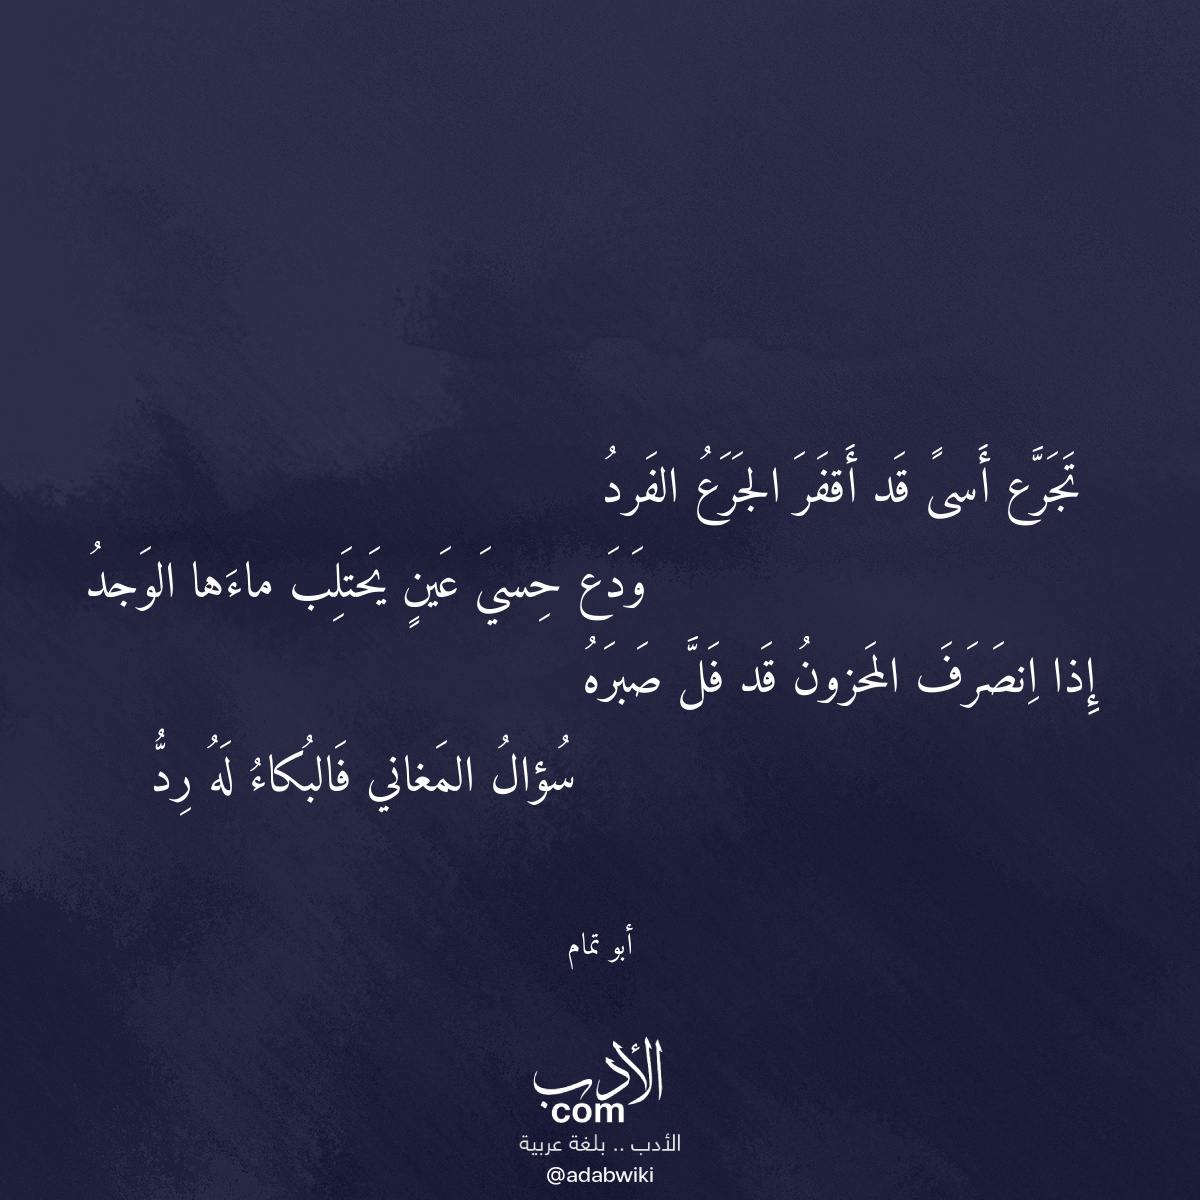 تَجَرَّع أَسىً قَد أَقفَرَ الجَرَعُ الفَردُ
وَدَع حِسيَ عَينٍ يَحتَلِب ماءَها الوَجدُ
إِذا اِنصَرَفَ المَحزونُ قَد فَلَّ صَبرَهُ
سُؤالُ المَغاني فَالبُكاءُ لَهُ رِدُّ
أبو تمام
الأدب
com
الأدب .. بلغة عربية
@adabwiki